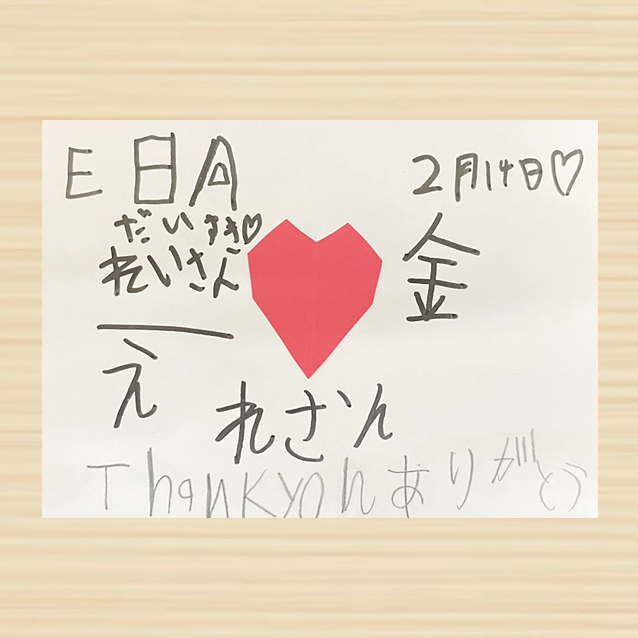 E 日 A
2月14日♡
だいすき♡
れいさん
金
え
れさん
Thankyou ありがとう